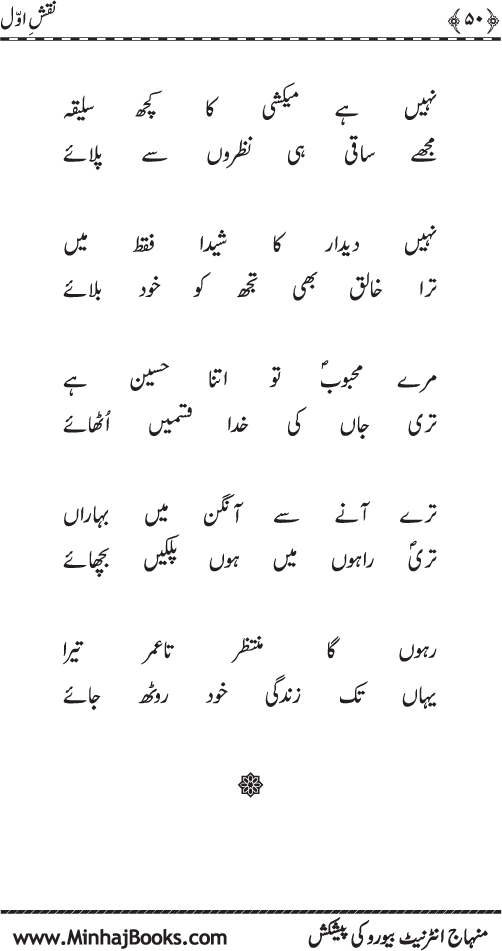 ﴿۵۰﴾ نقشِ اوّل
نہیں ہے میکشی کا کچھ سلیقہ
مجھے ساقی ہی نظروں سے پلائے
نہیں دیدار کا شیدا فقط میں
ترا خالق بھی تجھ کو خود بلائے
مرے محبوبؐ تو اتنا حسین ہے
تری جاں کی خدا قسمیں اُٹھائے
ترے آنے سے آنگن میں بہاراں
تریؐ راہوں میں ہوں پلکیں بچھائے
رہوں گا منتظر تاعمر تیرا
یہاں تک زندگی خود روٹھ جائے
منہاج انٹرنیٹ بیورو کی پیشکش www.MinhajBooks.com